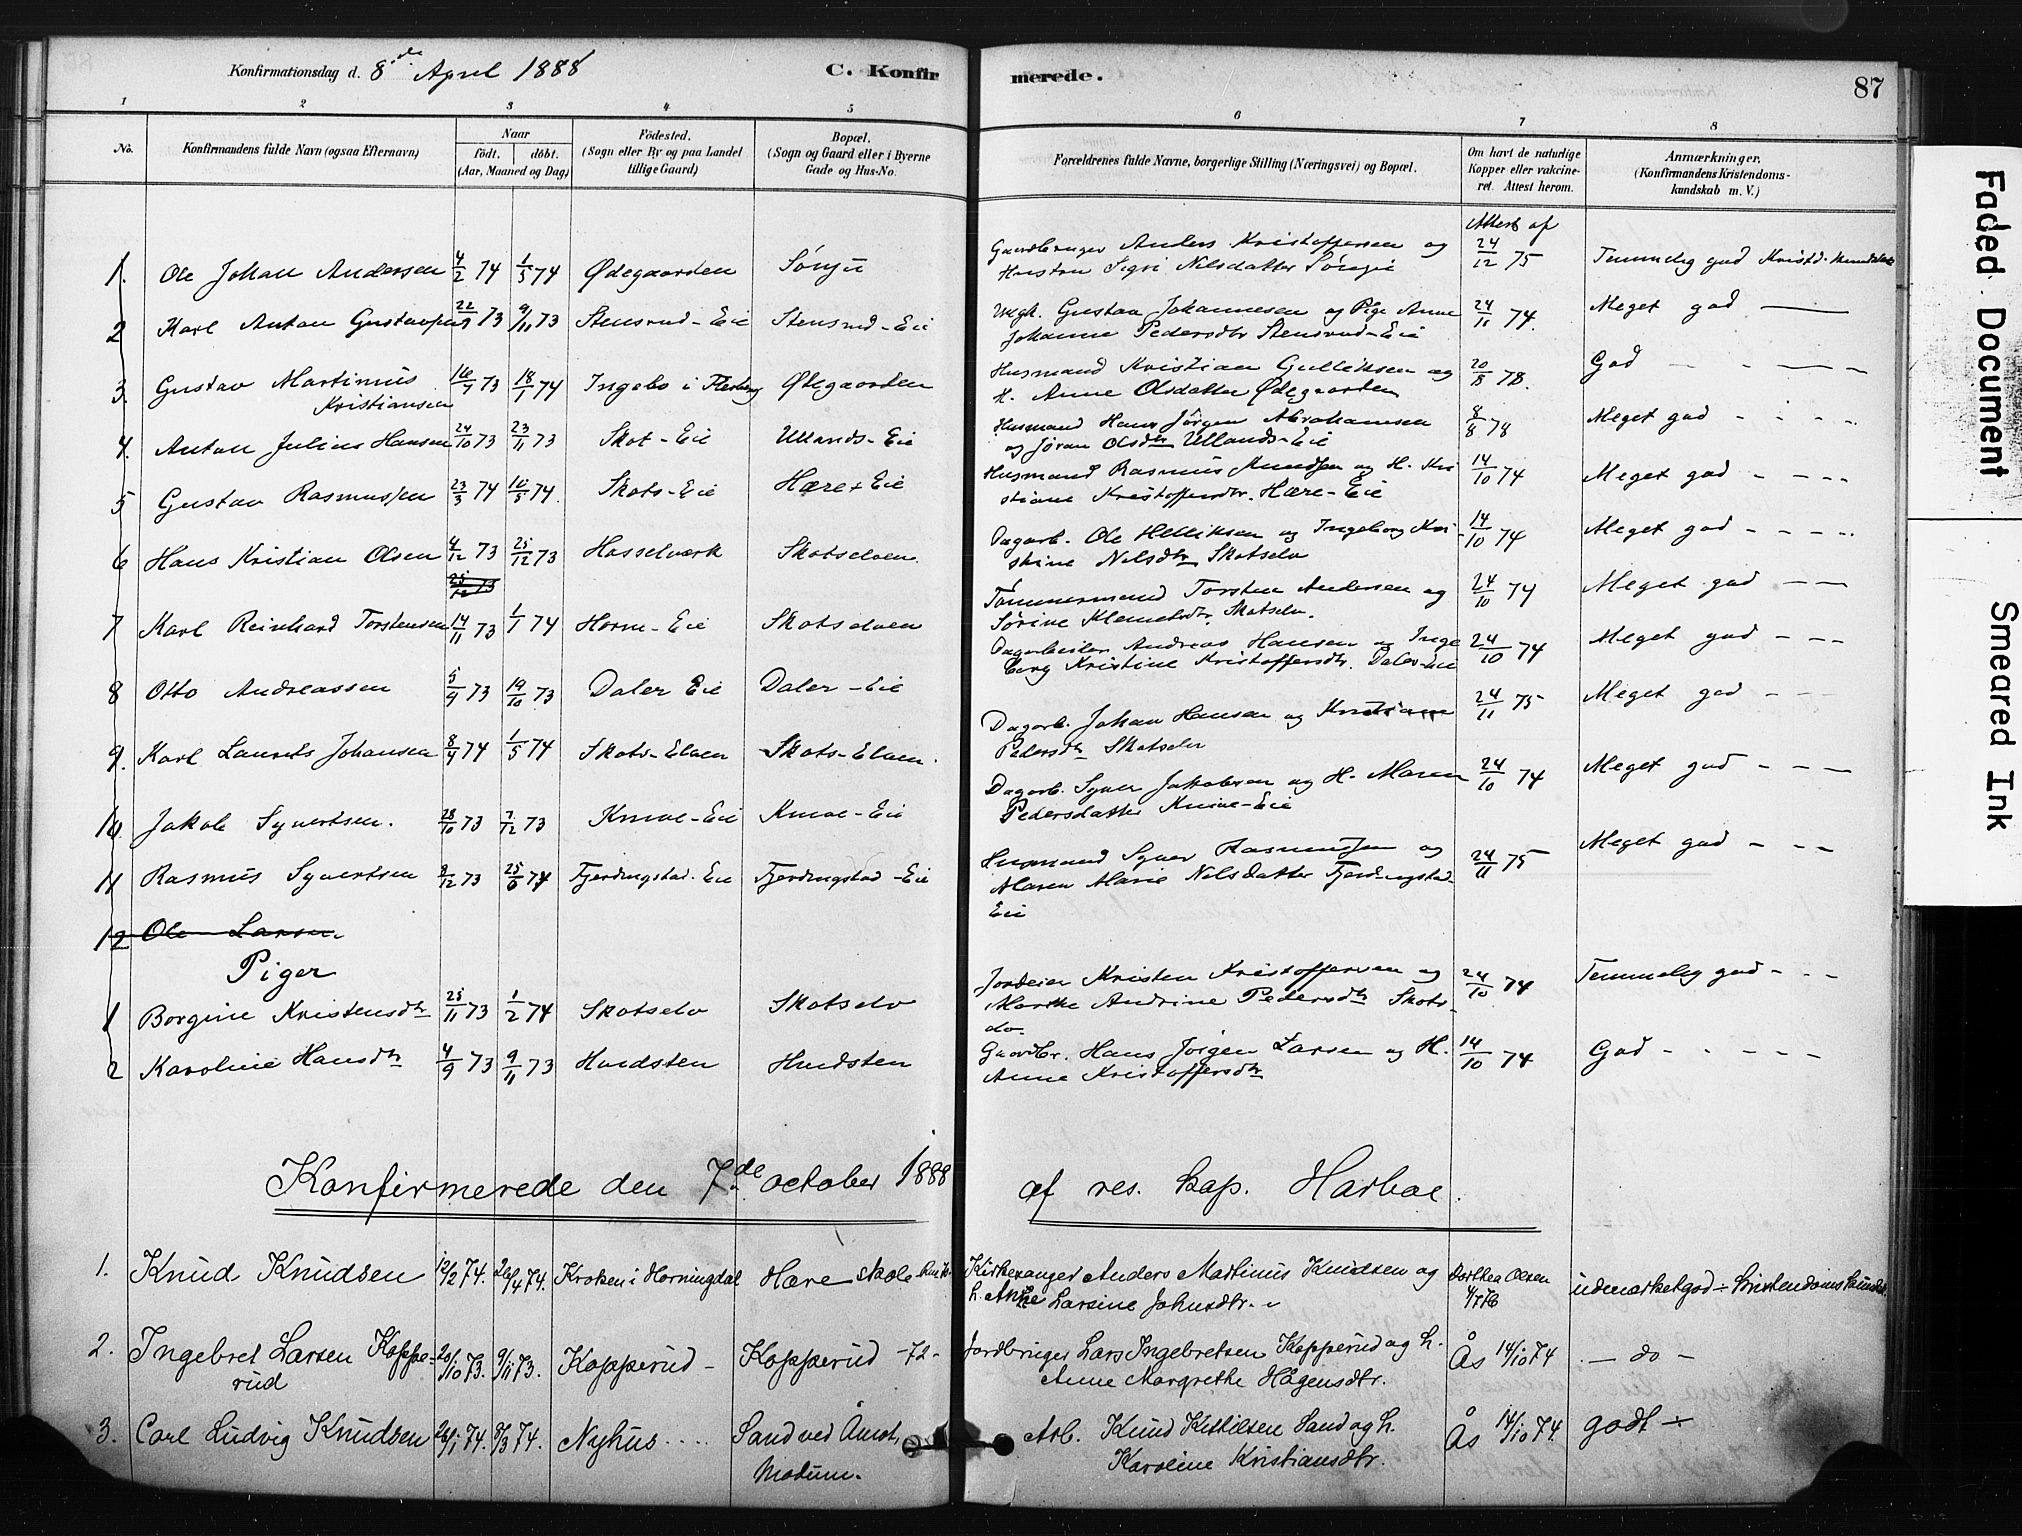 Konfirmationsdag d. 8de April 1888 C. Konfirmerede. 87
1 2 3 4 5 6 7 8
No. Konfirmandens fulde Navn (ogsaa Efternavn) Naar født. døbt. (Aar, Maaned og Dag) Fødested. (Sogn eller By og paa Landet tillige Gaard) Bopæl. (Sogn og Gaard eller i Byerne Gade og Hus-No. Forældrenes fulde Navne, borgerlige Stilling (Næringsvei) og Bopæl. Om havt de naturlige Kopper eller vakcineret. Attest herom. Anmærkninger. (Konfirmandens Kristendomskundskab m. V.)
Attest af
1. Ole Johan Andersen 4/2 74 1/5 74 Ødegaarden Sønju Gaardbruger Anders Kristoffersen og 24/12 75 Temmelig god Kristd.
Hustru Sigri Nilsdatter
2 Karl Anton Gustavsen 22/9 73 9/11 73 Stensrud-Eie Stensrud-Eie Ungk. Gustav Johannesen og Pige Anne 24/11 74. Meget god —
Johanne Pedersdtr Stensrud-Eie
3. Gustav Martinus 16/9 73 18/1 74 Ingebo i Flesberg Ødegaarden Husmand Kristian Gulliksen og 20/8 78. God - - - -
Kristiansen H. Anne Olsdatter Ødegaarden
4. Anton Julius Hansen 24/10 73 23/11 73 Skot-Eie Ullands-Eie Husmand Hans Jørgen Abrahamsen 8/8 78 Meget god - - - -
og Jøran Olsdtr Ullands-Eie
5 Gustav Rasmussen 23/3 74 10/5 74. Skots-Eie Hære-Eie Husmand Rasmus Amundsen og H. Kri 14/10 74 Meget god - - - -
stiane Kristoffersdtr. Hære-Eie
6 Hans Kristian Olsen 4/12 73 25/12 73 Hasselværk Skotselven Dagarb. Ole Helliksen og Ingeborg Kri- 14/10 74 Meget god - - - -
25/12 73 stine Nilsdtr Skotselv
7 Karl Reinhard Torstensen 14/11 73 1/1 74 Horne-Eie Skotselven Tømmermand Torsten Andersen og 24/10 74 Meget god - -
Sørine Klemetsdtr. Skotselv.
8 Otto Andreassen 5/9 73 19/10 73 Daler Eie Daler-Eie Dagarbeider Andreas Hansen og Inge 24/10 74 Meget god - - -
borg Kristine Kristoffersdtr. Daler-Eie
9. Karl Laurits Johansen 8/4 74 1/5 74 Skots-Elven Skots-Elven. Dagarb. Johan Hansen og Kristiane 24/11 75 Meget god - - -
Pedersdtr Skotselv
10 Jakob Syvertsen. 28/10 73 7/12 73 Knive-Eie Knive-Eie Dagarb. Syver Jakobsen og H. Maren 24/10 74 Meget god - - -
Pedersdatter Knive-Eie
11 Rasmus Syvertsen 9/12 73 25/6 74 Fjerdingstad-Eie Fjerdingstad-Eie Husmand Syver Rasmussen og 24/11 75 Meget god - - -
Maren Marie Nilsdatter Fjerdingstad-
Eie
12 Ole Larsen.
Piger
1 Borgine Kristensdtr 25/11 73 1/2 74 Skotselv Skotselv Jordeier Kristen Kristoffersen og 24/10 74 Temmelig god - - -
Marthe Andrine Pedersdtr Skots-
2 Karoline Hansdtr 4/9 73 9/11 73 Hundsten Hundsten Gaardbr. Hans Jørgen Larsen og H. 14/10 74 God - - - - -
Anne Kristoffersdtr
Konfirmerede den 7de october 1888 af res. kap. Harboe.
1. Knud Knudsen 12/2 74. 26/4 74. Kroken i Horningdal Hære skole Kirkesanger Anders Martinus Knudsen og Dorthea Olsen udmærketgod - Kristendomskundsk.
h. Anne Larsine Johnsdtr.
2. Ingebret Larsen Koppe- 20/10 73. 9/11 73. Kopperud - Kopperud -72- Jordbruger Lars Ingebretsen Kopperud og h. Ås 14/10 74 - do -
rud Anne Margrethe Hågensdtr.
3. Carl Ludvig Knudsen 26/1 74. 8/3 74. Nyhus.... Sand ved Åmot, Arb. Knud Kittilsen Sand og h. Ås 14/10 74. godt
Modum. Karoline Kristiansdtr.
Faded Document
Smeared Ink